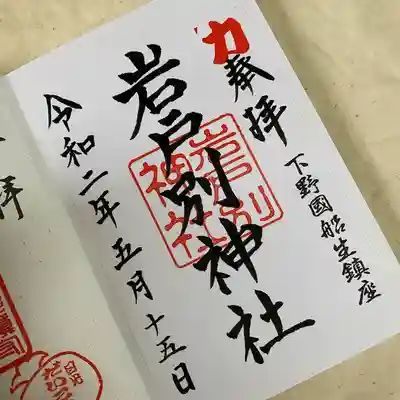 力
奉拝
下野國船生鎮座
岩戸別神社
岩戸別
神社
令和二年五月十五日
拝